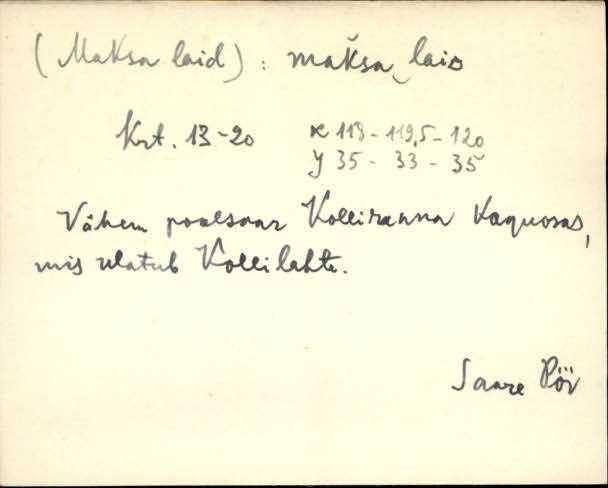 (Maksa laid) : mak̆sa‿laiᴅ
Krt. 13-20 x 118 - 119,5 - 120
y 35 - 33 - 35
Vähem poolsaar Kolliranna kaguosas,
mis ulatub Kollilahte.
Saare Pöi